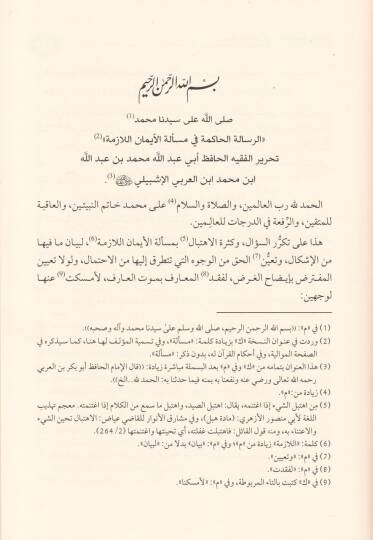 بسم الله الرحمن الرحيم
صلى الله على سيدنا محمد(1)
«الرسالة الحاكمة في مسألة الأيمان اللازمة»(2)
تحرير الفقيه الحافظ أبي عبد الله محمد بن عبد الله
ابن محمد ابن العربي الإشبيلي ﵁(3).
الحمد لله رب العالمين، والصلاة والسلام(4) على محمد خاتم النبيئين، والعاقبة
للمتقين، والرِّفعة في الدرجات للعالِمين.
هذا على تكرُّر السؤال، وكثرة الاهتبال(5) بمسألة الأيمان اللازمة(6)، لبيان ما فيها
من الإشكال، وتعيُّن(7) الحق من الوجوه التي تتطرق إليها من الاحتمال، ولولا تعيين
المفترض بإيضاح الغرض، لفقد(8) المعارف بموت العارف، لأمسكت(9) عنها
لوجهين:
(1) في «م»: ((بسم الله الرحمن الرحيم، صلى الله وسلم على سيدنا محمد وآله وصحبه)).
(2) وردت في عنوان النسخة «ك» بزيادة كلمة: «مسألة»، وفي تسمية المؤلف لها هنا، كما سيذكره في
الصفحة الموالية، وفي أحكام القرآن له، بدون ذكر: «مسألة».
(3) هذا العنوان بتمامه من «ك» وفي «م» بعد البسملة مباشرة زيادة: ((قال الإمام الحافظ أبو بكر بن العربي
رحمه الله تعالى ورضي عنه ونفعنا به بمنه فيما حدثنا به: الحمد لله...إلخ)).
(4) زيادة من: «م».
(5) من اهتبل الشيء إذا اغتنمه، يقال: اهتبل الصيد، واهتبل ما سمع من الكلام إذا اغتنمته. معجم تهذيب
اللغة لأبي منصور الأزهري: (مادة هبل)، وفي مشارق الأنوار للقاضي عياض: الاهتبال تحين الشيء
والاعتناء به، ومنه قول القائل: فاهتبلت غفلته، أي تحينتها واغتنمتها (2/ 264).
(6) كلمة: «اللازمة» زيادة من «م»؛ وفي «م»: «بيان» بدلا من: «لبيان».
(7) في «م»: «وتعيين».
(8) في «م»: «لفقدت».
(9) في «ك» كتبت بالتاء المربوطة، وفي «م»: «لأمسكنا».